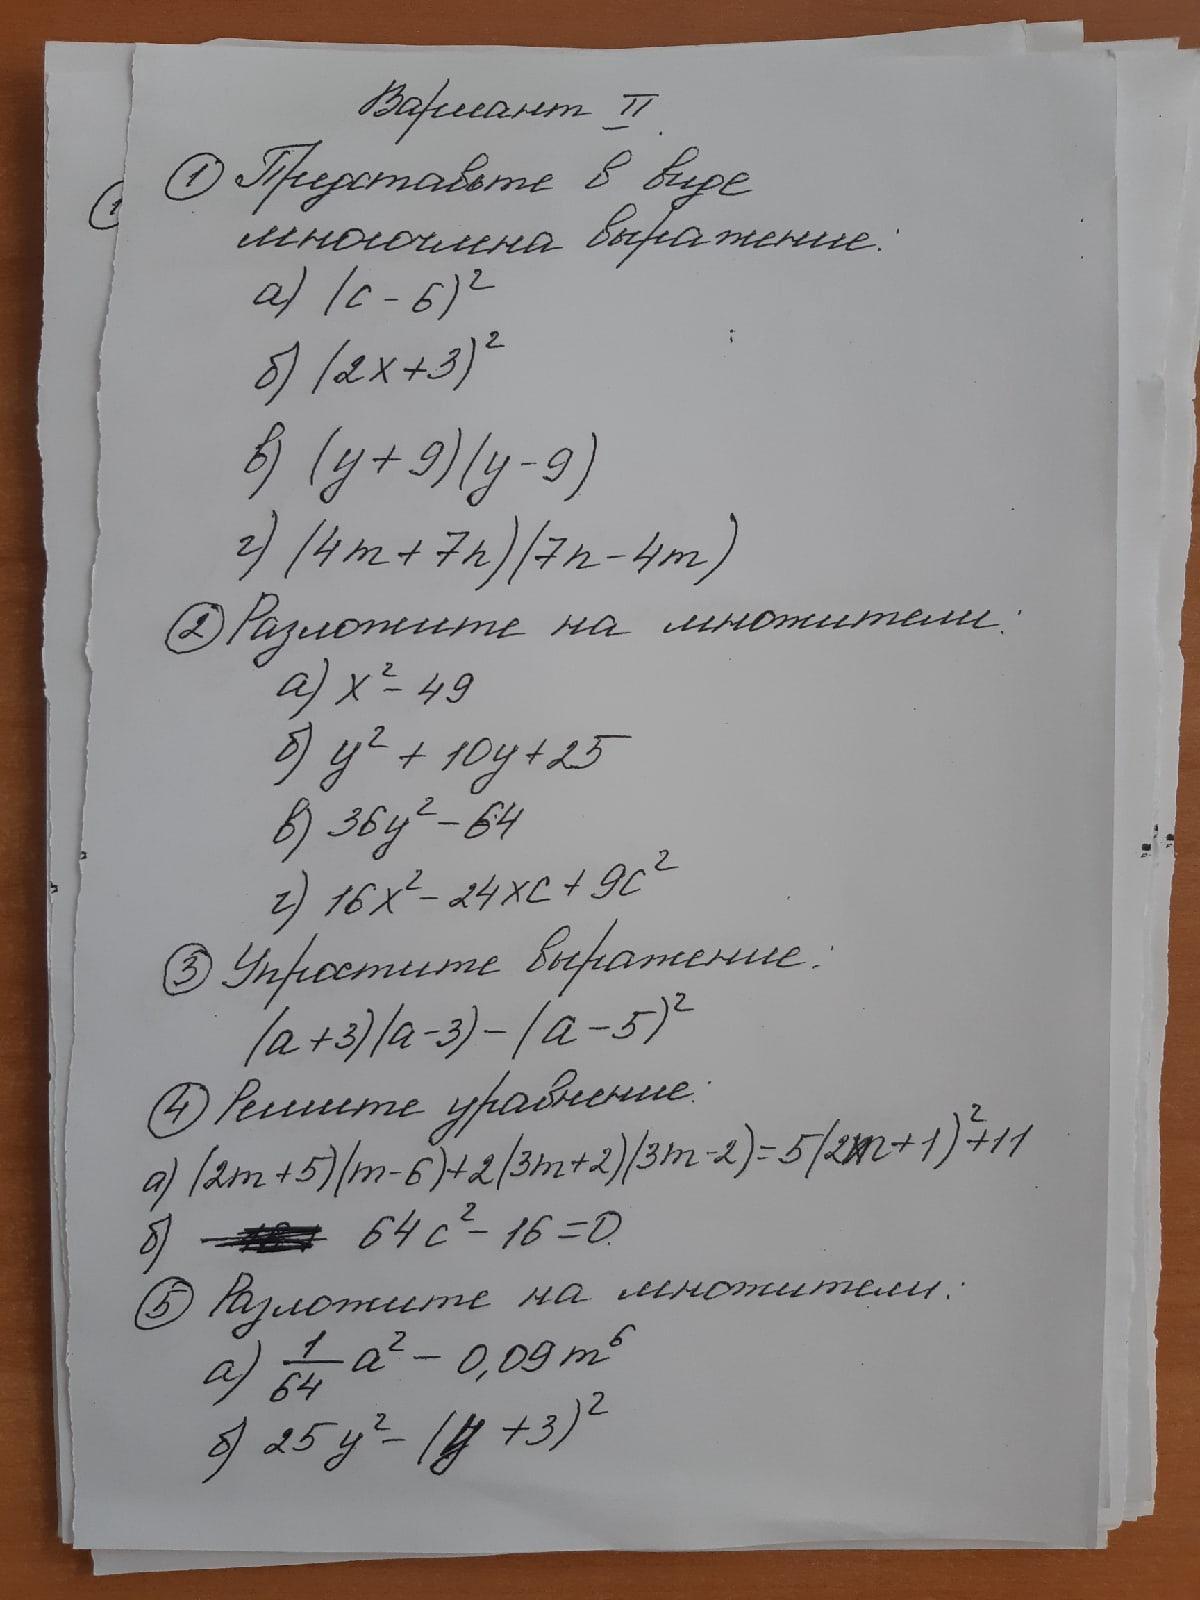 Вариант II.
① Представьте в виде
многочлена выражение:
а) (c - 6)²
б) (2x+3)²
в) (y + 9)(y - 9)
г) (4m + 7n)(7n - 4m)
② Разложите на множители:
а) x² - 49
б) y² + 10y + 25
в) 36y² - 64
г) 16x² - 24xc + 9c²
③ Упростите выражение:
(a + 3)(a - 3) - (a - 5)²
④ Решите уравнение:
а) (2m + 5)(m - 6) + 2(3m + 2)(3m - 2) = 5(2m + 1)² + 11
б) 64c² - 16 = 0.
⑤ Разложите на множители:
а) 1/64 a² - 0,09m⁶
б) 25y² - (y + 3)²